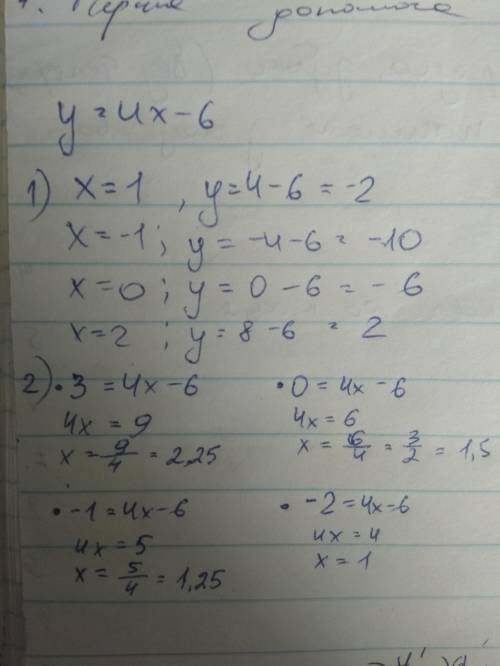 допомога
y = 4x - 6
1) x = 1 , y = 4 - 6 = -2
x = -1 ; y = -4 - 6 = -10
x = 0 ; y = 0 - 6 = - 6
x = 2 ; y = 8 - 6 = 2
2) • 3 = 4x - 6 • 0 = 4x - 6
4x = 9 4x = 6
x = 9/4 = 2,25 x = 6/4 = 3/2 = 1,5
• -1 = 4x - 6 • -2 = 4x - 6
4x = 5 4x = 4
x = 5/4 = 1,25 x = 1